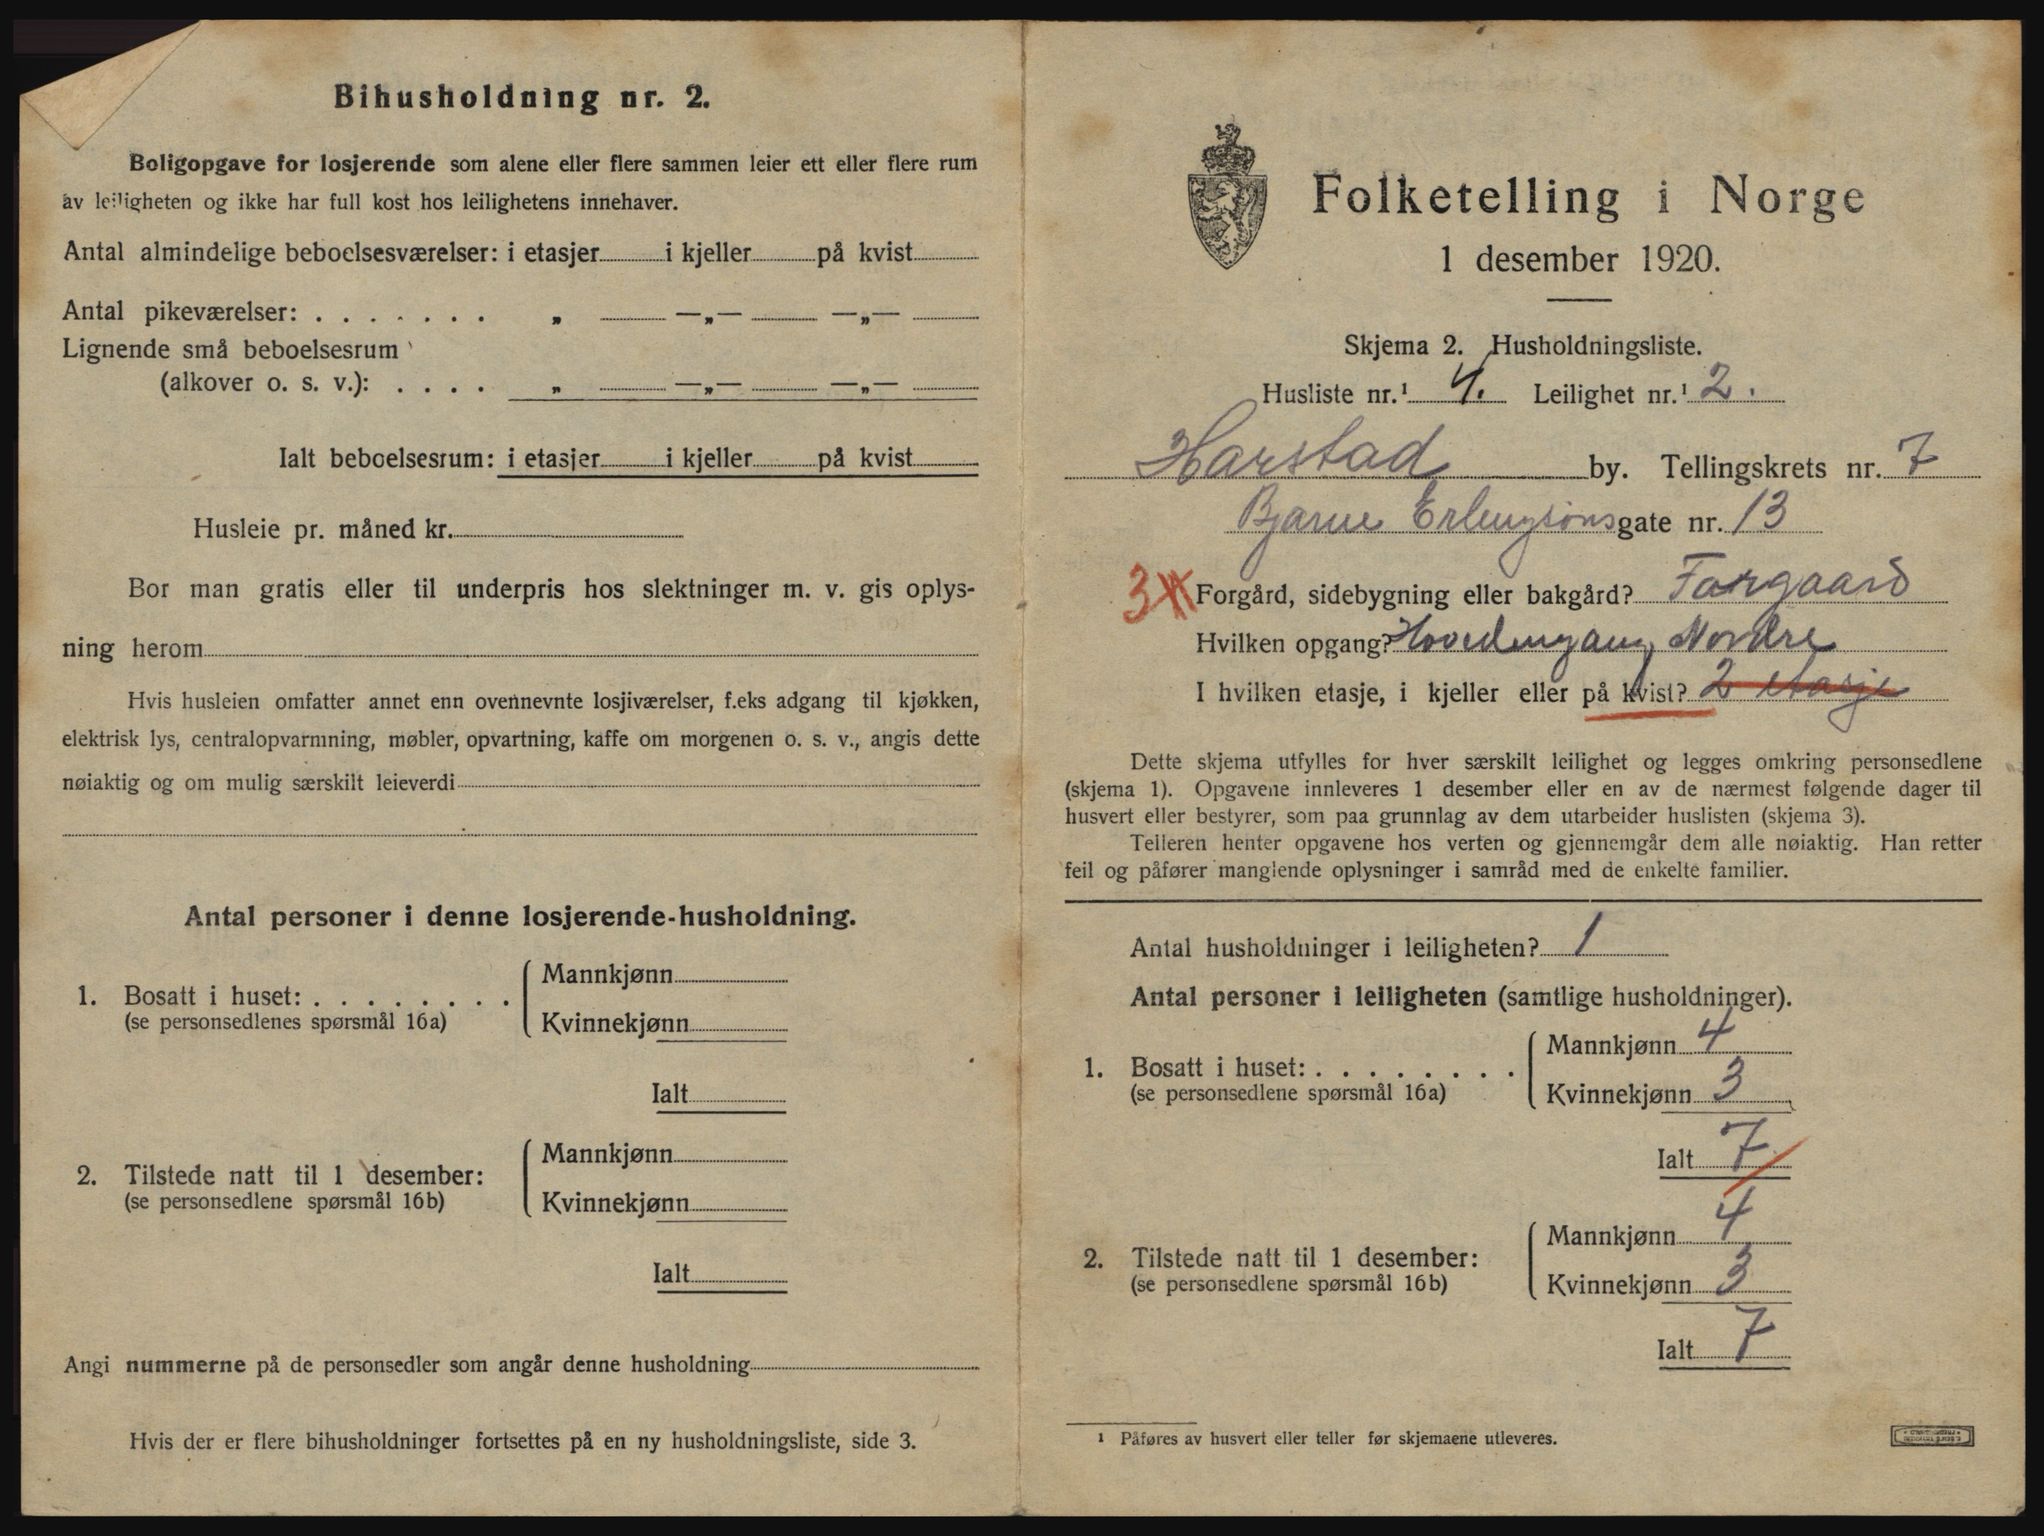 Bihusholdning nr. 2.
Boligopgave for losjerende som alene eller flere sammen leier ett eller flere rum
av leiligheten og ikke har full kost hos leilighetens innehaver.
Antal almindelige beboelsesværelser: i etasjer i kjeller på kvist
Antal pikeværelser: . . . . . . . „ —„— —„—
Lignende små beboelsesrum
(alkover o. s. v.): . . . . „ —„— —„—
Ialt beboelsesrum: i etasjer i kjeller på kvist
Husleie pr. måned kr.
Bor man gratis eller til underpris hos slektninger m. v. gis oplys-
ning herom
Hvis husleien omfatter annet enn ovennevnte losjiværelser, f.eks adgang til kjøkken,
elektrisk lys, centralopvarmning, møbler, opvartning, kaffe om morgenen o. s. v., angis dette
nøiaktig og om mulig særskilt leieverdi
Antal personer i denne losjerende-husholdning.
1. Bosatt i huset: . . . . . . . .
(se personsedlenes spørsmål 16a)
Mannkjønn
Kvinnekjønn
Ialt
2. Tilstede natt til 1 desember:
(se personsedlene spørsmål 16b)
Mannkjønn
Kvinnekjønn
Ialt
Angi nummerne på de personsedler som angår denne husholdning
Hvis der er flere bihusholdninger fortsettes på en ny husholdningsliste, side 3.
Folketelling i Norge
1 desember 1920.
Skjema 2. Husholdningsliste.
Husliste nr.¹ 4. Leilighet nr.¹ 2.
Harstad by. Tellingskrets nr. 7
Bjarne Erlingsøns gate nr. 13
3 Forgård, sidebygning eller bakgård? Forgaard
Hvilken opgang? Hovedingang Nordre
I hvilken etasje, i kjeller eller på kvist? 2 etasje
Dette skjema utfylles for hver særskilt leilighet og legges omkring personsedlene
(skjema 1). Opgavene innleveres 1 desember eller en av de nærmest følgende dager til
husvert eller bestyrer, som paa grunnlag av dem utarbeider huslisten (skjema 3).
Telleren henter opgavene hos verten og gjennemgår dem alle nøiaktig. Han retter
feil og påfører manglende oplysninger i samråd med de enkelte familier.
Antal husholdninger i leiligheten? 1
Antal personer i leiligheten (samtlige husholdninger).
1. Bosatt i huset: . . . . . . . .
(se personsedlene spørsmål 16a)
Mannkjønn 4
Kvinnekjønn 3
Ialt 7
2. Tilstede natt til 1 desember:
(se personsedlene spørsmål 16b)
Mannkjønn 4
Kvinnekjønn 3
Ialt 7
¹ Påføres av husvert eller teller før skjemaene utleveres.